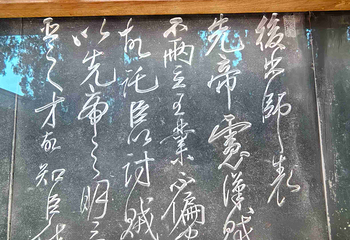 後出師表
先帝慮漢賊
不兩立王業不偏安
故託臣以討賊
以先帝之明
臣之才故知臣